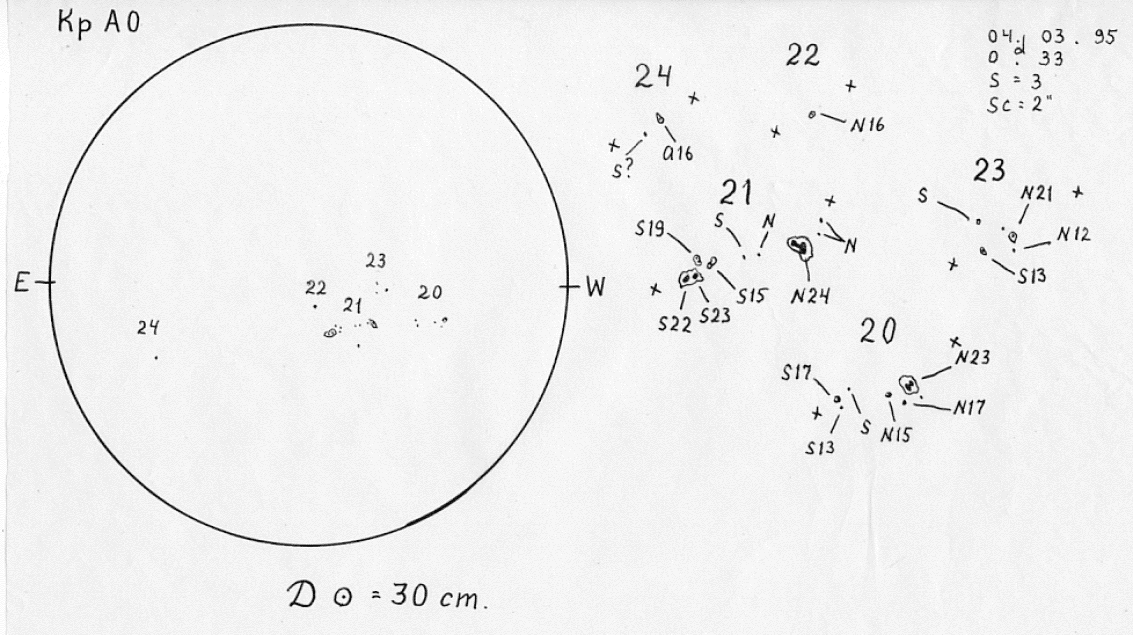 Кр АО
04. 03. 95
0d. 33
S = 3
Sc = 2"
24
a16
S?
22
N16
23
S
N21
N12
S13
21
S19
S
N
N
S22
S23
S15
N24
20
N23
S17
S13
S
N15
N17
E
W
23
22
21
20
24
D ⊙ = 30 cm.